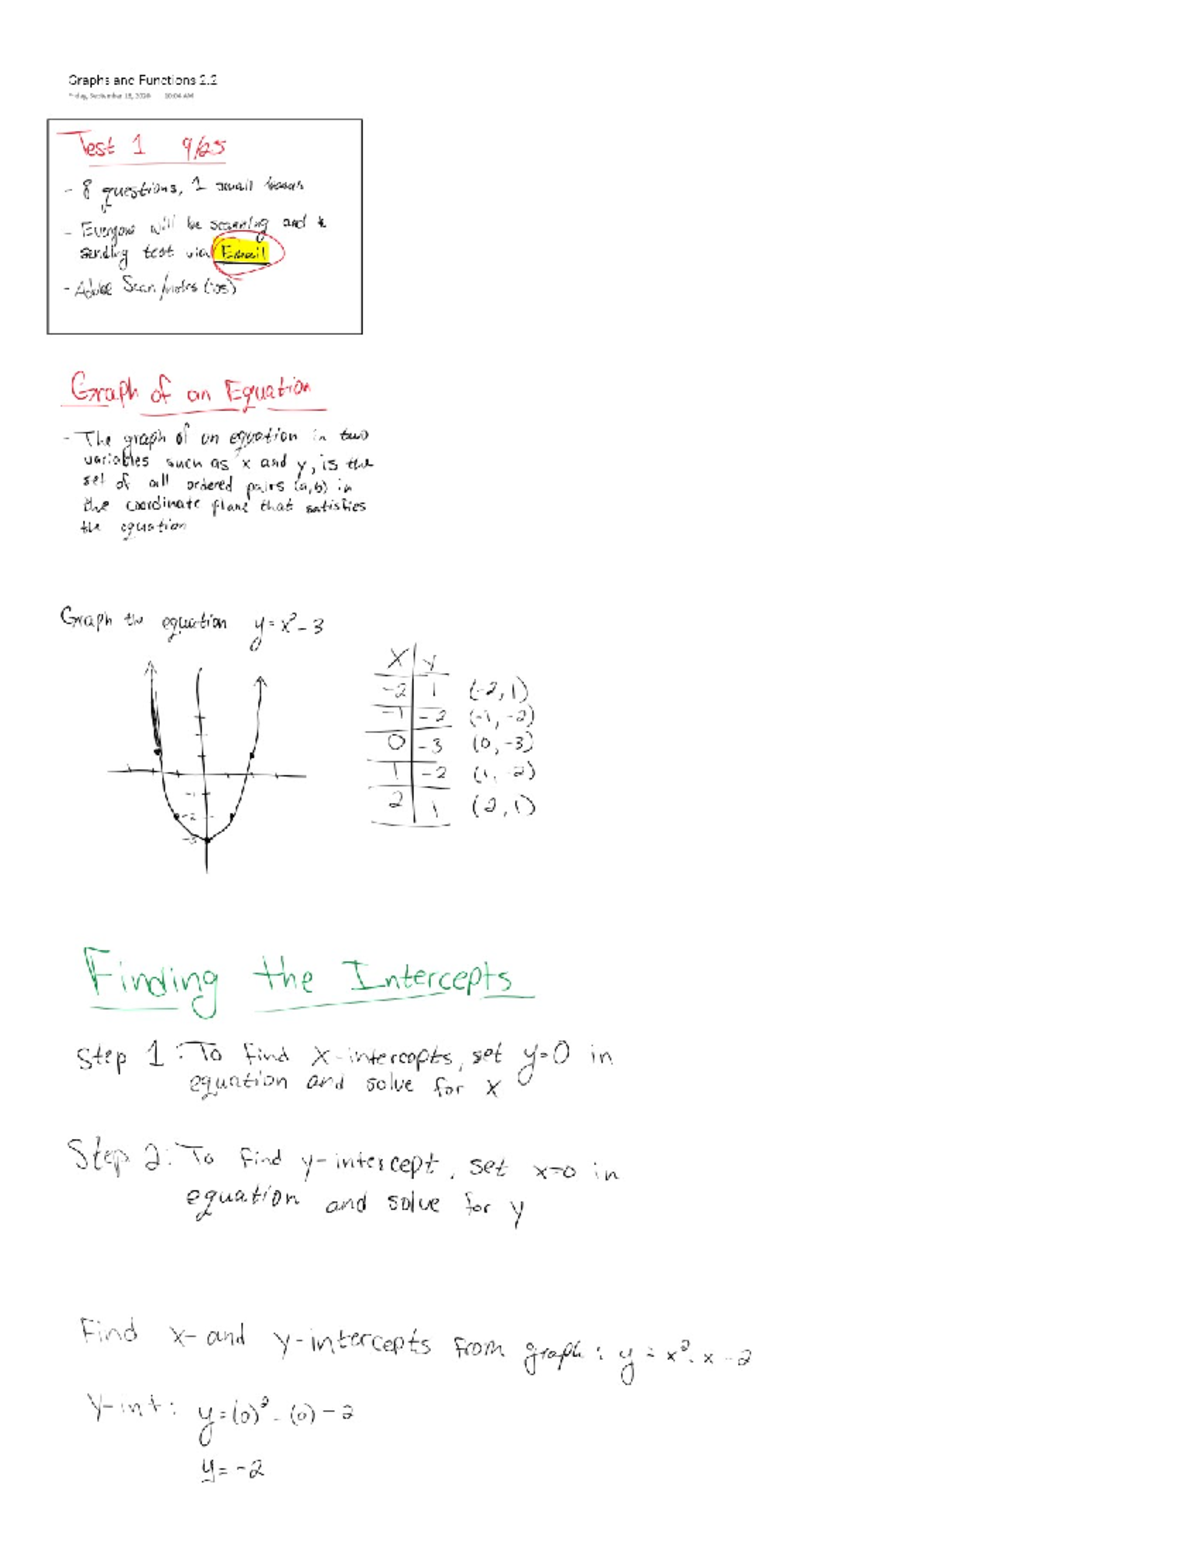 Graphs and Functions 2.2
Friday, September 18, 2020 10:04 AM
Test 1 9/25
- 8 questions, 1 small bonus
- Everyone will be scanning and
sending test via Email
- Adobe Scan/notes (ios)
Graph of an Equation
- The graph of an equation in two
variables such as x and y, is the
set of all ordered pairs (a,b) in
the coordinate plane that satisfies
the equation
Graph the equation y = x² - 3
X Y
-2 1 (-2, 1)
-1 -2 (-1, -2)
0 -3 (0, -3)
1 -2 (1, -2)
2 1 (2, 1)
-1
-2
-3
Finding the Intercepts
Step 1: To find x-intercepts, set y=0 in
equation and solve for x
Step 2: To find y-intercept, set x=0 in
equation and solve for y
Find x- and y-intercepts from graph: y = x² - x - 2
y-int: y = (0)² - (0) - 2
y = -2